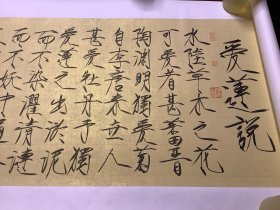 愛蓮說
水陸草木之花
可愛者甚蕃晉
陶淵明獨愛菊
自李唐來世人
甚愛牡丹予獨
愛蓮之出淤泥
而不染濯清漣
而不妖中